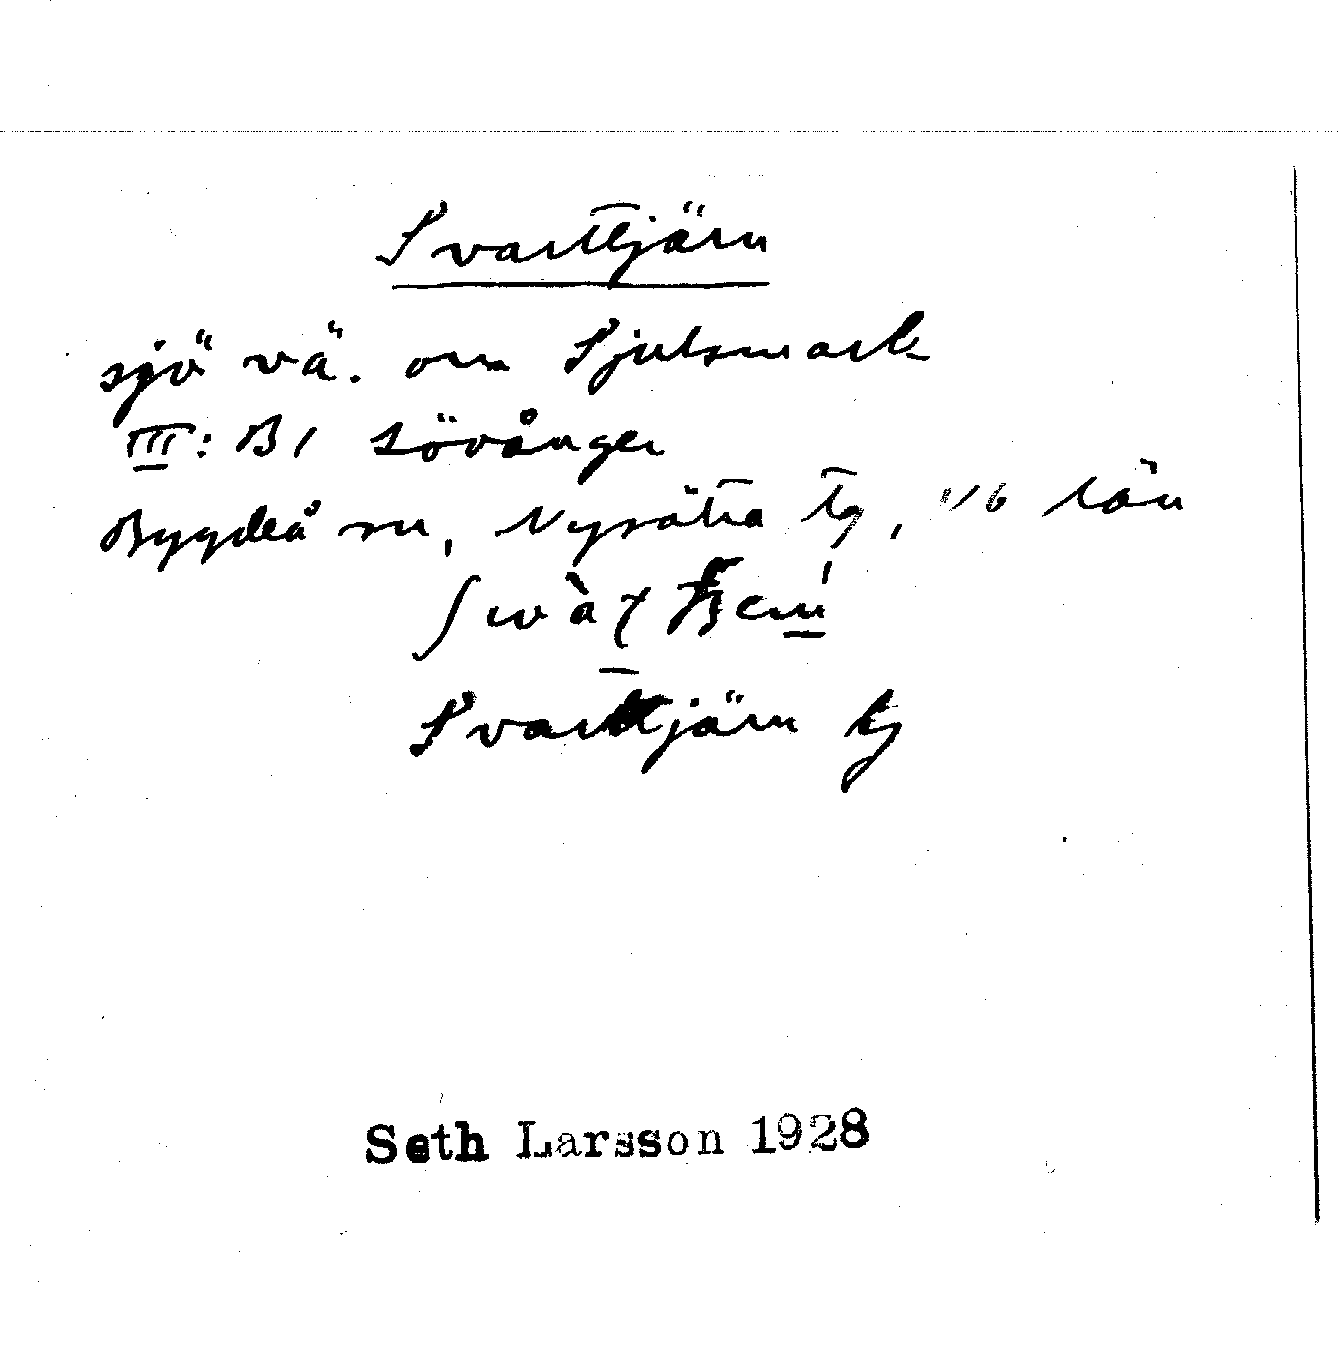 Svarttjärn
sjö vä. om Sjulsmark
III: B1 Lövånger
Bygdeå sn, Nysätra tg, Vb län
Svarttjärn tj
Seth Larsson 1928